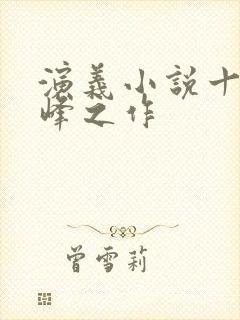 演義小説十
峰之作
曾雪莉